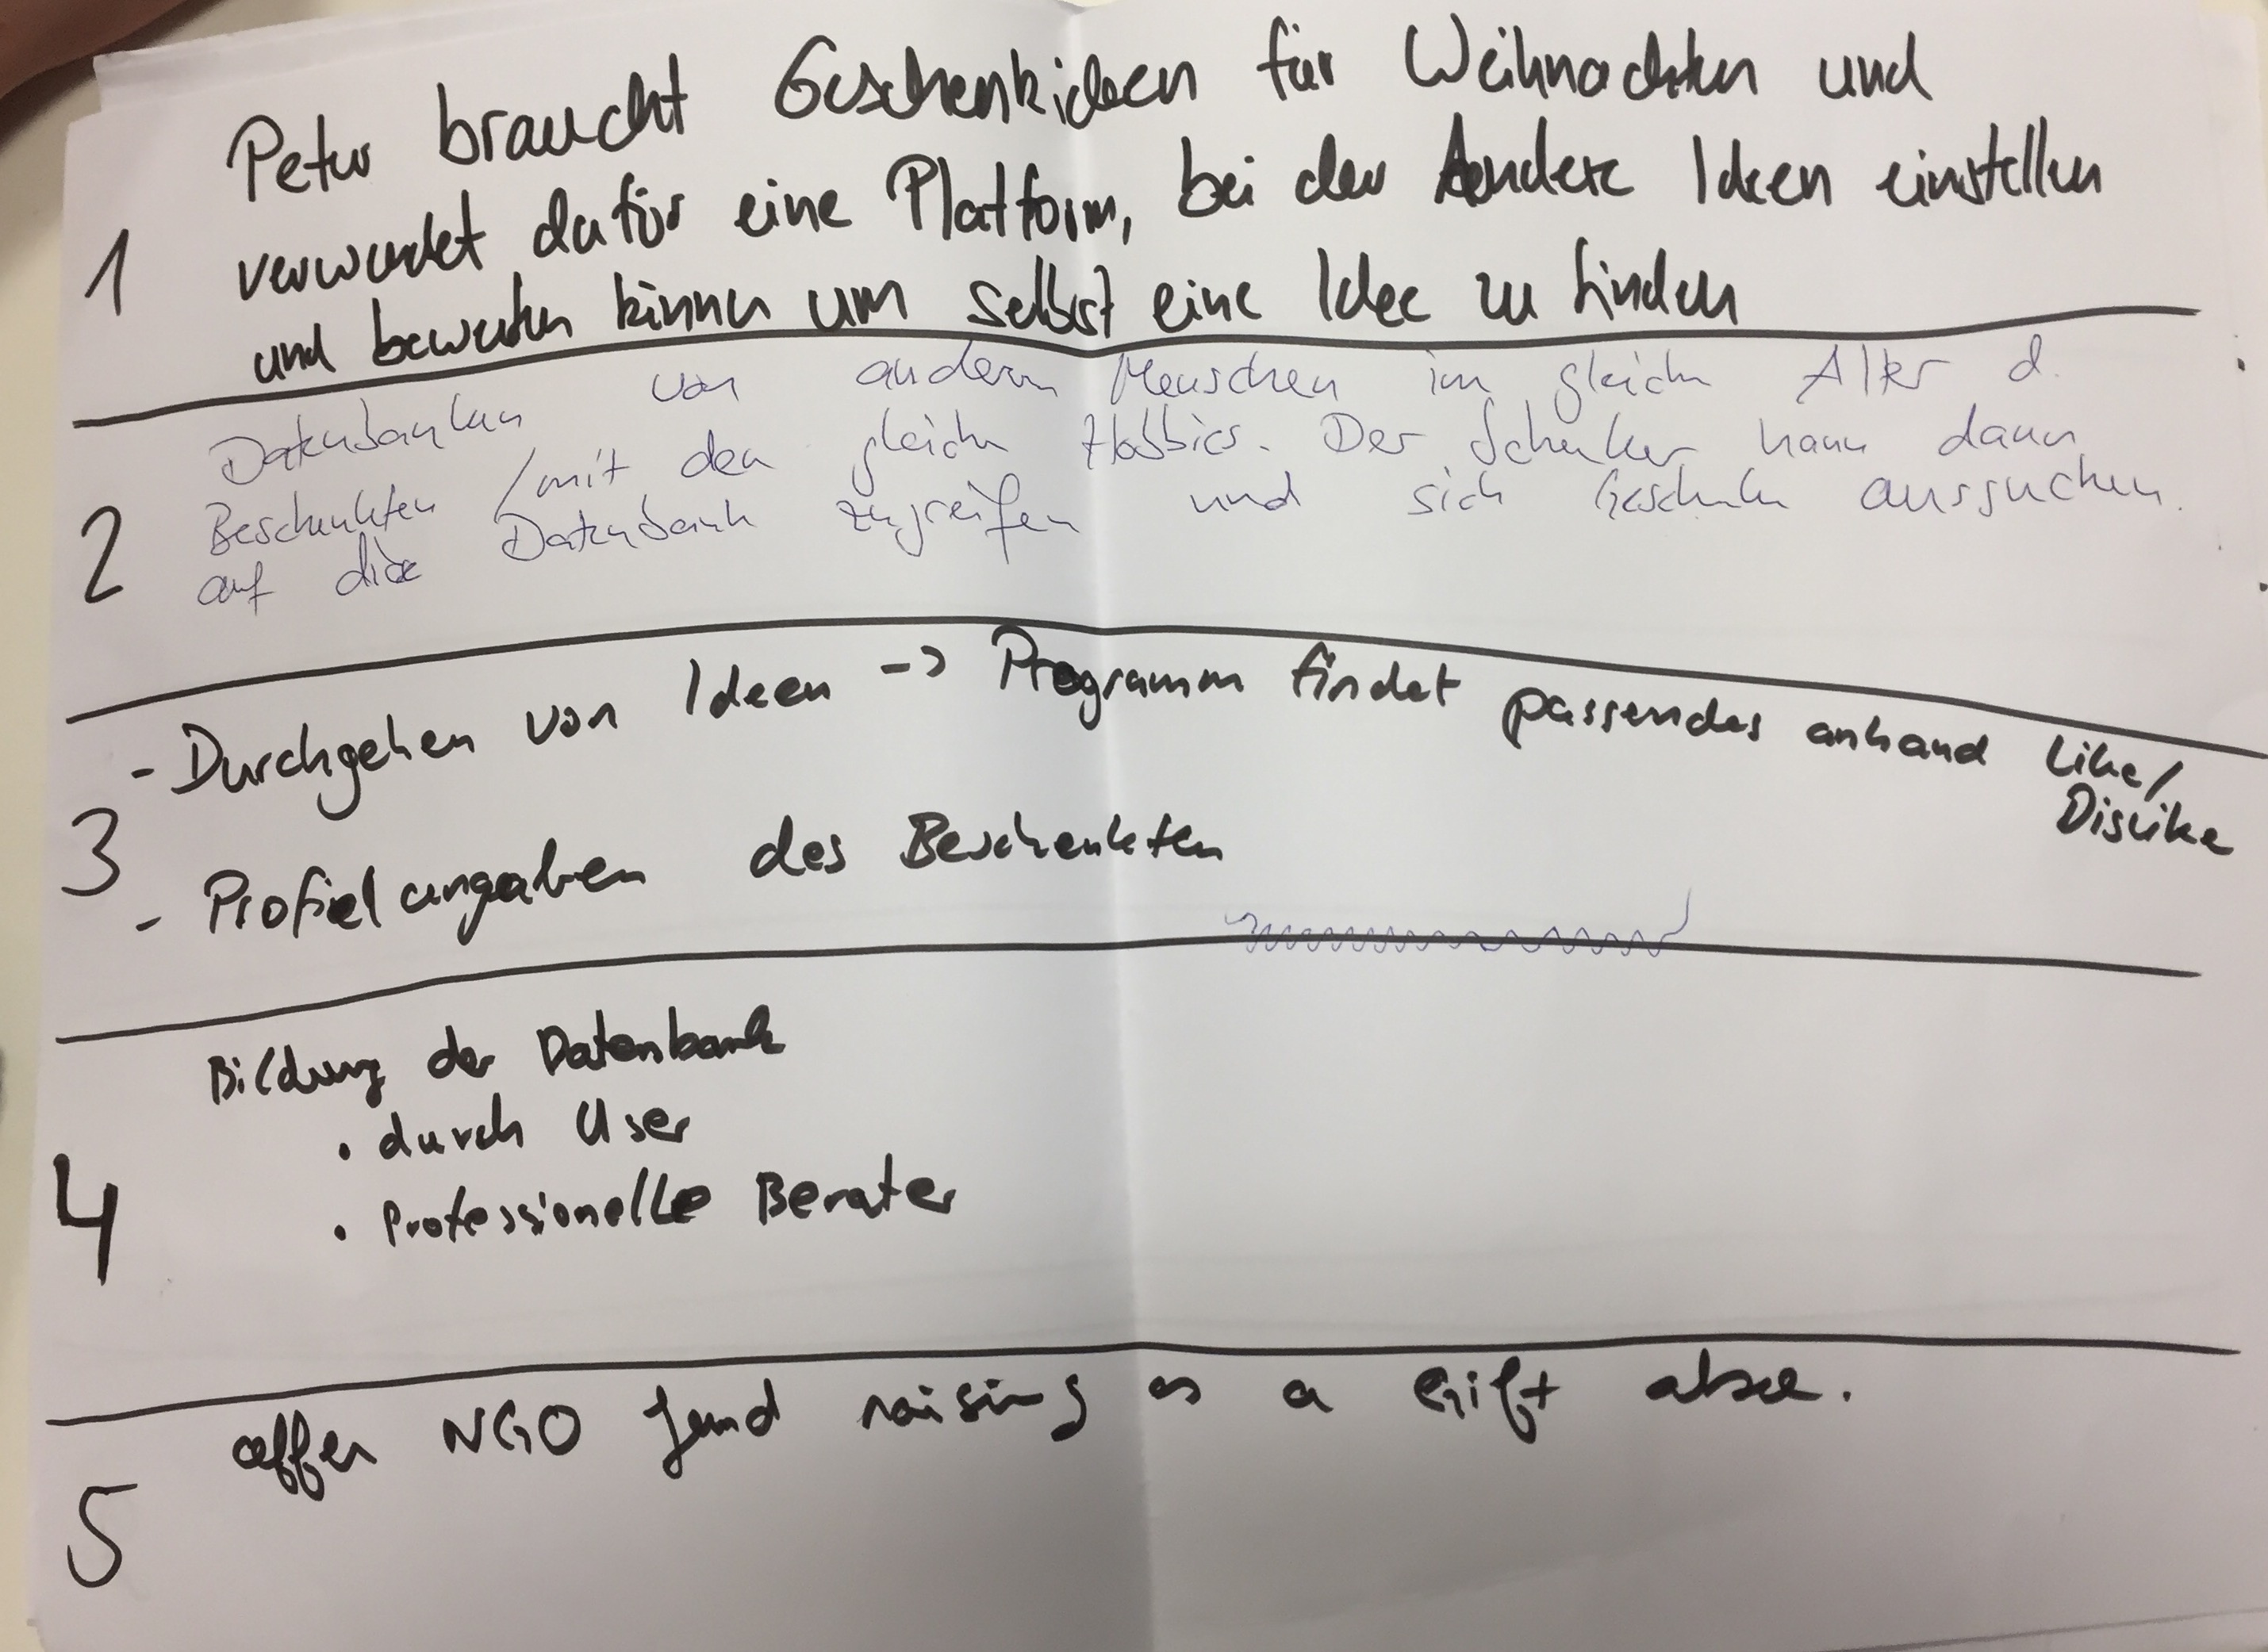 Peter braucht Geschenkideen für Weihnachten und
verwendet dafür eine Platform, bei der Andere Ideen einstellen
1
und bewerten können um selbst eine Idee zu finden
Datenbanken von andern Menschen im gleichen Alter d.
Beschenkten / mit den gleichen Hobbies. Der Schenker kann dann
2
auf die Datenbank zugreifen und sich Geschenke aussuchen.
- Durchgehen von Ideen -> Programm findet passendes anhand Like/
Dislike
3
- Profielangaben des Beschenkten
Bildung der Datenbank
• durch User
4
• Professionelle Berater
offer NGO fund raising as a Gift
5